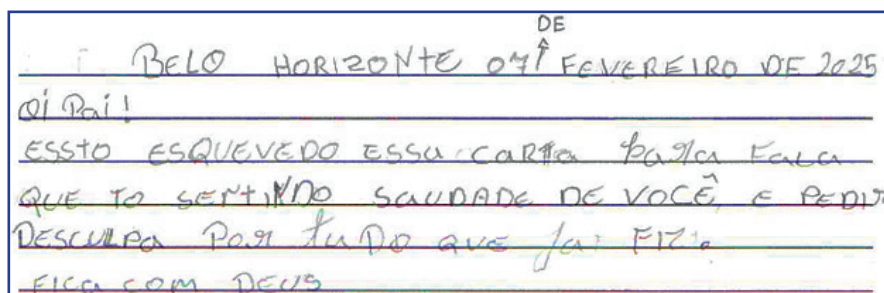 BELO HORIZONTE 07 DE FEVEREIRO DE 2025
Oi Pai!
ESSTO ESQUEVEDO ESSA CARTA PaRa FALA
QUE TO SENTINDO SAUDADE DE VOCÊ, E PEDIR
DESCULPA POR tuDO QUE jai FIZ.
FICA COM DEUS